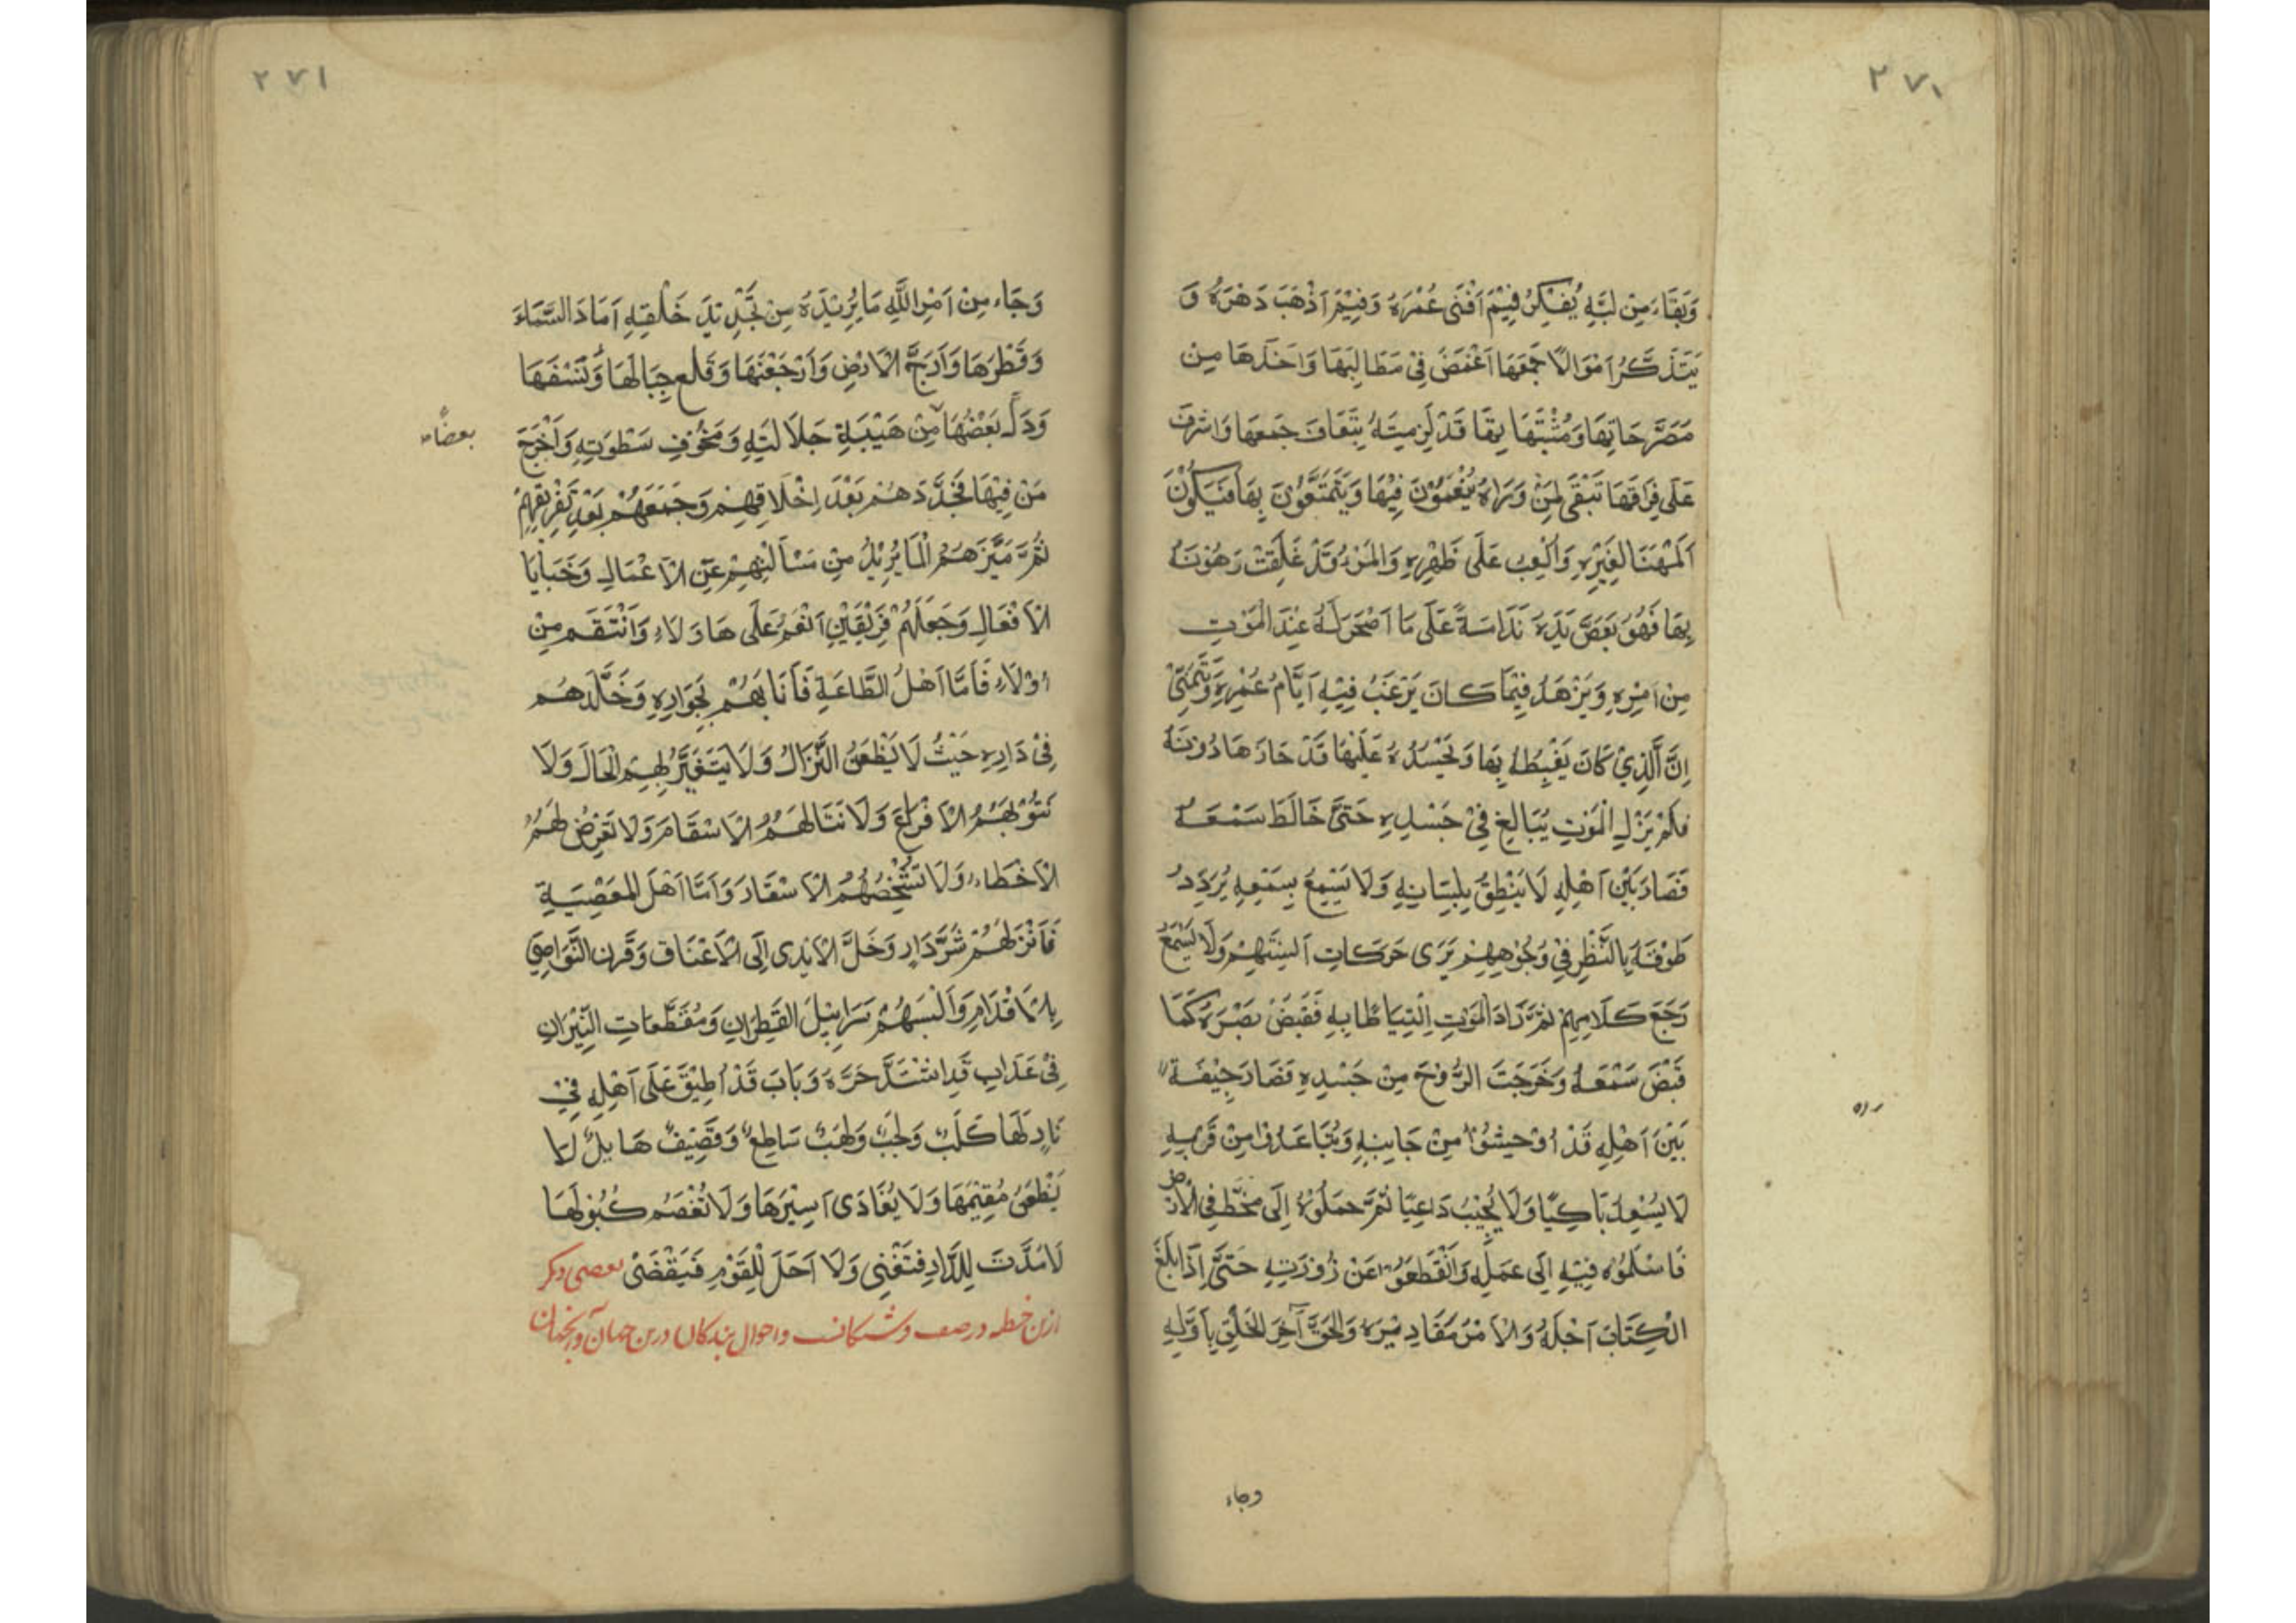 ٢٧١
وَبَقَاءٍ مِنْ لُبِّهِ يُفَكِّرُ فِيْمَ اَفْنَى عُمْرَهُ وَفِيْمَ اَذْهَبَ دَهْرَهُ وَ
يَتَذَكَّرُ اَمْوَالًا جَمَعَهَا اَغْمَضَ فِي مَطَالِبِهَا وَاَخَذَهَا مِنْ
مُصَرَّحَاتِهَا وَمُشْتَبِهَاتِهَا قَدْ لَزِمَتْهُ تَبِعَاتُ جَمْعِهَا وَاَشْرَفَ
عَلَى فِرَاقِهَا تَبْقَى لِمَنْ وَرَاهُ يَنْعَمُوْنَ فِيْهَا وَيَتَمَتَّعُوْنَ بِهَا فَيَكُوْنُ
اَلْمَهْنَا لِغَيْرِهِ وَالْعِبْ عَلَى ظَهْرِهِ وَالْمَرْءُ قَدْ غَلِقَتْ رُهُوْنُهُ
بِهَا فَهُوَ يَعَضُّ يَدَهُ نَدَامَةً عَلَى مَا اَصْحَرَ لَهُ عِنْدَ الْمَوْتِ
مِنْ اَمْرِهِ وَيَزْهَدُ فِيْمَا كَانَ يَرْغَبُ فِيْهِ اَيَّامَ عُمْرِهِ وَيَتَمَنَّى
اِنَّ الَّذِيْ كَانَ يَغْبِطُهُ بِهَا وَيَحْسُدُهُ عَلَيْهَا قَدْ حَازَهَا دُوْنَهُ
فَلَمْ يَزَلِ الْمَوْتُ يُبَالِغُ فِيْ جَسَدِهِ حَتَّى خَالَطَ سَمْعَهُ
فَصَارَ بَيْنَ اَهْلِهِ لَا يَنْطِقُ بِلِسَانِهِ وَلَا يَسْمَعُ بِسَمْعِهِ يُرَدِّدُ
طَرْفَهُ بِالنَّظَرِ فِيْ وُجُوْهِهِمْ يَرَى حَرَكَاتِ اَلْسِنَتِهِمْ وَلَا يَسْمَعُ
رَجْعَ كَلَامِهِمْ ثُمَّ زَادَ الْمَوْتُ اِلْتِيَاطًا بِهِ فَقَبَضَ بَصَرَهُ كَمَا
قَبَضَ سَمْعَهُ وَخَرَجَتِ الرُّوْحُ مِنْ جَسَدِهِ فَصَارَ جِيْفَةً
بَيْنَ اَهْلِهِ قَدْ اُوْحِشُوْا مِنْ جَانِبِهِ وَتَبَاعَدُوْا مِنْ قُرْبِهِ
لَا يُسْعِدُ بَاكِيًا وَلَا يُجِيْبُ دَاعِيًا ثُمَّ حَمَلُوْهُ اِلَى مَخَطٍّ فِي الْاَرْضِ
فَاَسْلَمُوْهُ فِيْهِ اِلَى عَمَلِهِ وَانْقَطَعُوْا عَنْ زَوْرَتِهِ حَتَّى اِذَا بَلَغَ
الْكِتَابُ اَجَلَهُ وَالْاَمْرُ مَقَادِيْرَهُ وَالْحَقَ آخِرُ الْخَلْقِ بِاَوَّلِهِ
وجاء
٢٧١
وَجَاءَ مِنْ اَمْرِ اللَّهِ مَا يُرِيْدُهُ مِنْ تَجْدِيْدِ خَلْقِهِ اَمَادَ السَّمَاءَ
وَفَطَرَهَا وَاَرَجَّ الْاَرْضَ وَاَرْجَفَهَا وَقَلَعَ جِبَالَهَا وَنَسَفَهَا
وَدَكَّ بَعْضُهَا مِنْ هَيْبَةِ جَلَالَتِهِ وَمَخُوْفِ سَطْوَتِهِ وَاَخْرَجَ
بعضًا
مَنْ فِيْهَا فَجَدَّدَهُمْ بَعْدَ اِخْلَاقِهِمْ وَجَمَعَهُمْ بَعْدَ تَفْرِيْقِهِمْ
ثُمَّ مَيَّزَهُمْ لِمَا يُرِيْدُ مِنْ مَسْأَلَتِهِمْ عَنِ الْاَعْمَالِ وَخَبَايَا
الْاَفْعَالِ وَجَعَلَهُمْ فَرِيْقَيْنِ اَنْعَمَ عَلَى هَاؤلَاءِ وَانْتَقَمَ مِنْ
هؤلَاءِ فَاَمَّا اَهْلُ الطَّاعَةِ فَاَثَابَهُمْ بِجَوَارِهِ وَخَلَّدَهُمْ
فِيْ دَارِهِ حَيْثُ لَا يَظْعَنُ النُّزَّالُ وَلَا يَتَغَيَّرُ لِهِمُ الْحَالُ وَلَا
تَنُوْبُهُمُ الْاَفْزَاعُ وَلَا تَنَالُهُمُ الْاَسْقَامُ وَلَا تَعْرِضُ لَهُمُ
الْاَخْطَاءُ وَلَا تُشْخِصُهُمُ الْاَسْفَارُ وَاَمَّا اَهْلُ الْمَعْصِيَةِ
فَاَنْزَلَهُمْ شَرَّ دَارٍ وَغَلَّ الْاَيْدِى اِلَى الْاَعْنَاقِ وَقَرَنَ النَّوَاصِيَ
بِالْاَقْدَامِ وَاَلْبَسَهُمْ سَرَابِيْلَ الْقَطِرَانِ وَمُقَطَّعَاتِ النِّيْرَانِ
فِيْ عَذَابٍ قَدِ اشْتَدَّ حَرُّهُ وَبَابٍ قَدْ اُطْبِقَ عَلَى اَهْلِهِ فِيْ
نَارٍ لَهَا كَلَبٌ وَلَجَبٌ وَلَهَبٌ سَاطِعٌ وَقَصِيْفٌ هَايِلٌ لَا
يَظْعَنُ مُقِيْمُهَا وَلَا يُفَادَى اَسِيْرُهَا وَلَا تُفْصَمُ كُبُوْلُهَا
لَا مُدَّةَ لِلدَّارِ فَتَفْنِى وَلَا اَجَلَ لِلْقَوْمِ فَيُقْضَى بعضى ديكر
ازين خطبه در صفت فرشتكان واحوال بندكان درين جهان وآنجهان